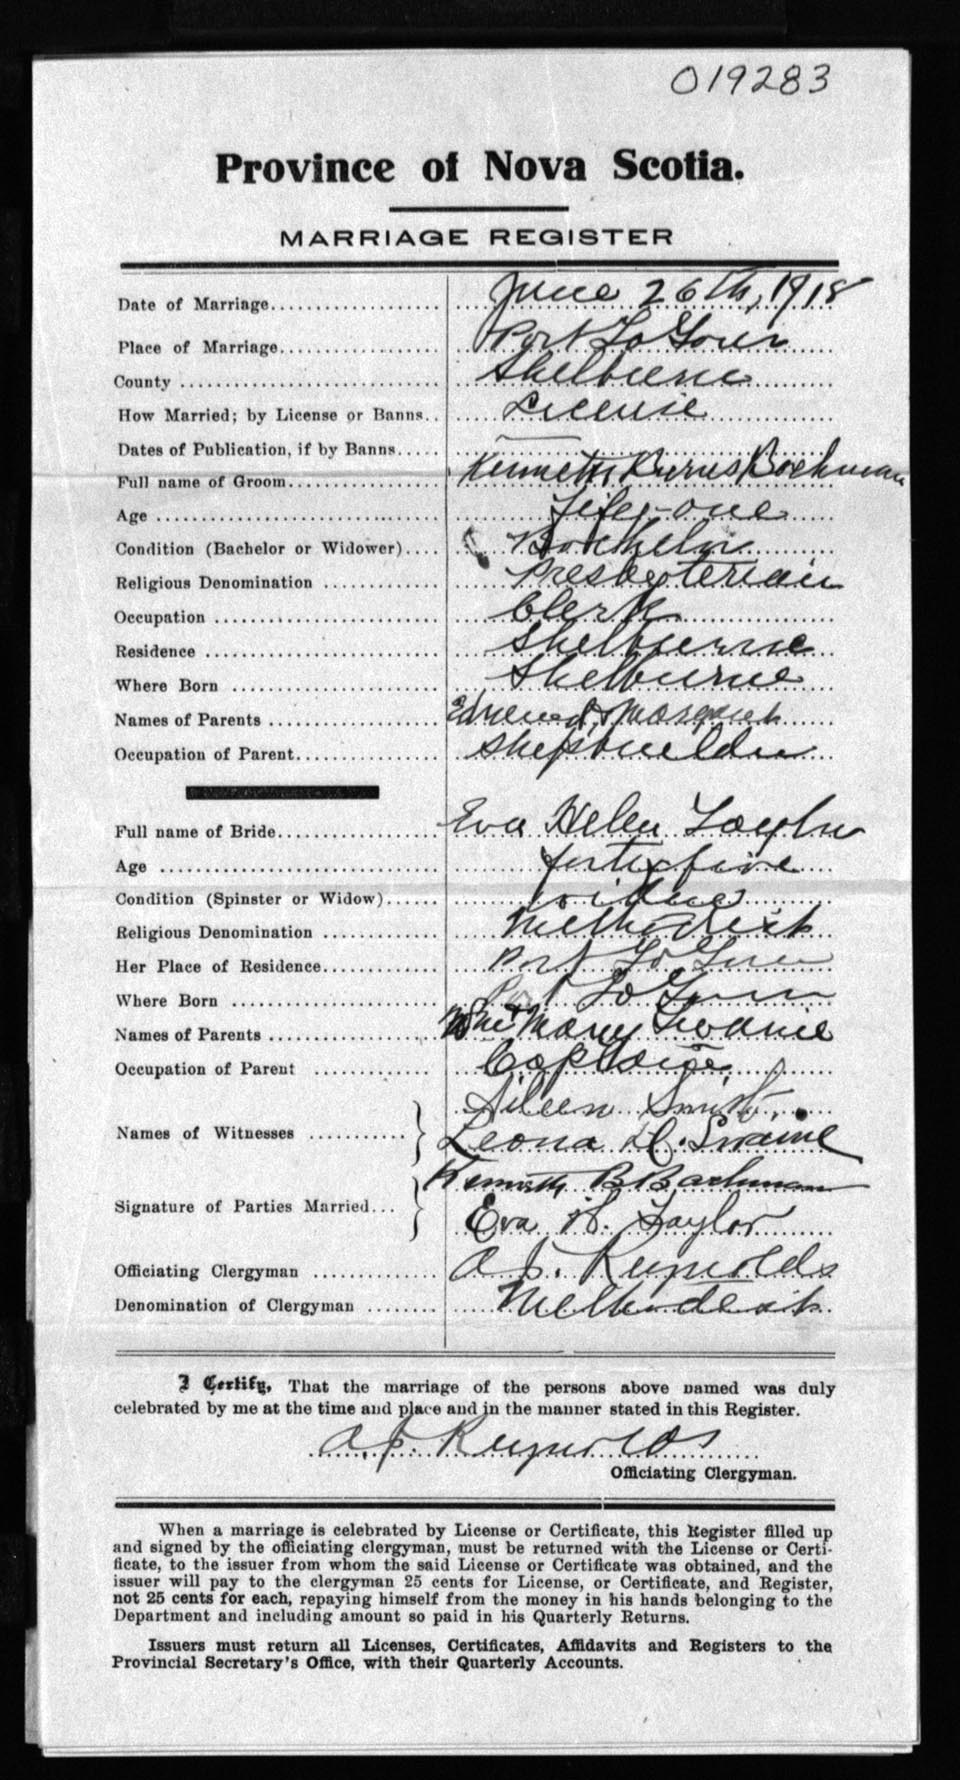 019283
Province of Nova Scotia.
MARRIAGE REGISTER
Date of Marriage.................. June 26th, 1918
Place of Marriage................. Port LaTour
County ........................... Shelburne
How Married; by License or Banns.. License
Dates of Publication, if by Banns..... —
Full name of Groom................ Kenneth Burns Bachman
Age .............................. Fifty-one
Condition (Bachelor or Widower).... Bachelor
Religious Denomination ............ Presbyterian
Occupation ....................... Clerk
Residence ........................ Shelburne
Where Born ....................... Shelburne
Names of Parents ................. & Margaret
Occupation of Parent.............. Shipbuilder
Full name of Bride................ Eva Helen Taylor
Age .............................. forty five
Condition (Spinster or Widow)...... widow
Religious Denomination ............ Methodist
Her Place of Residence............ Port LaTour
Where Born ....................... Port LaTour
Names of Parents ................. Mary Swaine
Occupation of Parent ............. 
Names of Witnesses ........... } Aileen
Leona H. Swaine
Signature of Parties Married... } Kenneth B Bachman
Eva H. Taylor
Officiating Clergyman ............. A. J. Reynolds
Denomination of Clergyman ........ Methodist
I Certify, That the marriage of the persons above named was duly
celebrated by me at the time and place and in the manner stated in this Register.
A. J. Reynolds
Officiating Clergyman.
When a marriage is celebrated by License or Certificate, this Register filled up
and signed by the officiating clergyman, must be returned with the License or Certi-
ficate, to the issuer from whom the said License or Certificate was obtained, and the
issuer will pay to the clergyman 25 cents for License, or Certificate, and Register,
not 25 cents for each, repaying himself from the money in his hands belonging to the
Department and including amount so paid in his Quarterly Returns.
Issuers must return all Licenses, Certificates, Affidavits and Registers to the
Provincial Secretary's Office, with their Quarterly Accounts.